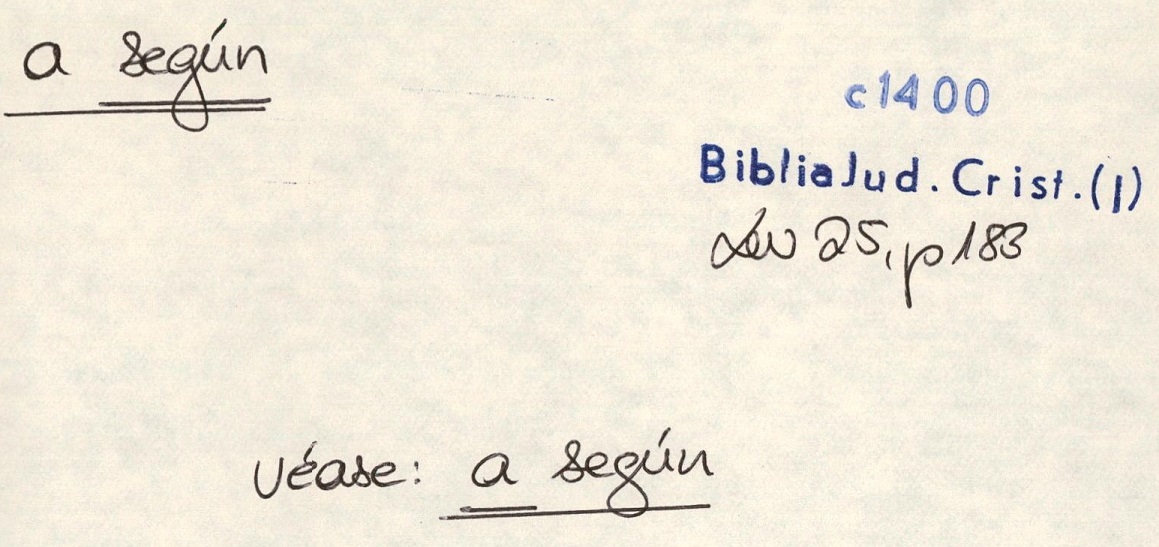 a según
c1400
Biblia Jud. Crist.(I)
Lev 25, p 183
Véase: a según